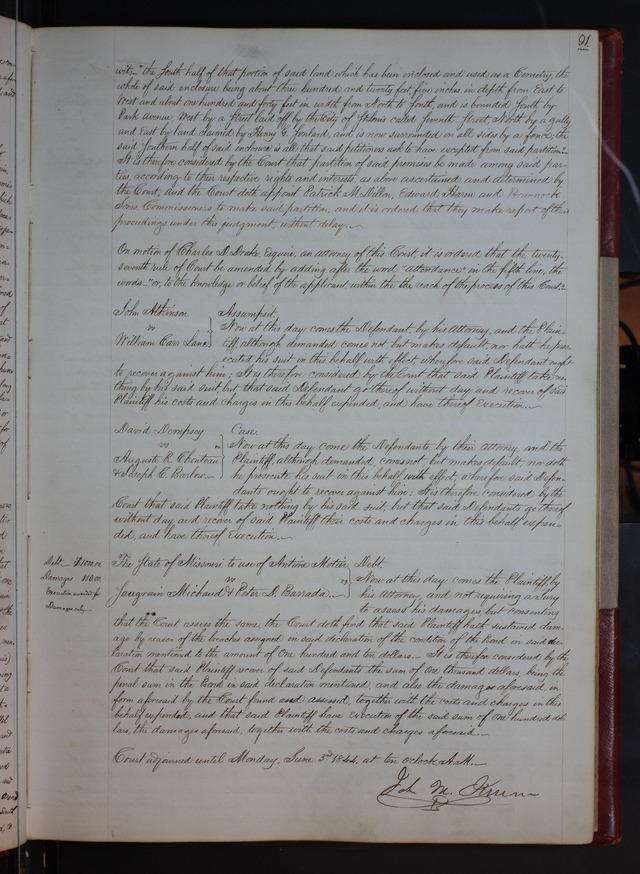 91
wit:- "the South half of that portion of said land which has been enclosed and used as a Cemetery, the
whole of said enclosure being about three hundred and twenty feet five inches in depth from East to
West and about one hundred and forty feet in width from North to South, and is bounded South by
Park avenue, West by a street laid off by the City of St Louis called Seventh Street, North by a gully
and East by land claimed by Henry G. Soulard, and is now surrounded on all sides by a fence; the
said Southern half of said enclosure is all that said petitioners ask to have excepted from said partition."
It is therefore considered by the Court that partition of said premises be made among said par-
ties, according to their respective rights and interests, as above ascertained and determined by
the Court; and the Court doth appoint Patrick M. Dillon, Edward Haren and
Commissioners to make said partition, and it is ordered that they make report of their
proceedings under this judgment, without delay.
On motion of Charles D. Drake, Esquire, an attorney of this Court, it is ordered that the twenty-
seventh rule of Court be amended by adding after the word "attendance" in the fifth line, the
words- "or, to the knowledge or belief of the applicant, within the the reach of the process of this Court."
John Atkinson
vs
William Carr Lane
Assumpsit.
Now at this day comes the Defendant, by his Attorney, and the Plain-
tiff, although demanded, comes not but makes default, nor hath he pros-
ecuted his suit in this behalf with effect, wherefore said Defendant ought
to recover against him; It is therefore considered by the Court that said Plaintiff take no-
thing by his said suit but that said Defendant go thereof without day and recover of said
Plaintiff his costs and charges in this behalf expended, and have thereof Execution.
David Dempsey
vs
Auguste R. Chouteau
& Joseph C. Barlow
Case.
Now at this day come the Defendants, by their Attorney, and the
Plaintiff, although demanded, comes not, but makes default; nor doth
he prosecute his suit in this behalf with effect, wherefore said Defen-
dants ought to recover against him; It is therefore considered by the
Court that said Plaintiff take nothing by his said suit, but that said Defendants go thereof
without day and recover of said Plaintiff their costs and charges in this behalf expen-
ded, and have thereof Execution.
Debt $1000.00
Damages 110.00
Execution awarded for
Damages only.
The State of Missouri to use of Antoine Motier
vs
Michaud & Peter D. Barrada
Debt.
Now at this day comes the Plaintiff by
his Attorney, and not requiring a Jury
to assess his damages, but consenting
that the Court assess the same, the Court doth find that said Plaintiff hath sustained dam-
age by reason of the breaches assigned in said declaration of the condition of the Bond in said dec-
laration mentioned to the amount of One hundred and ten dollars. It is therefore considered by the
Court that said Plaintiff recover of said Defendants the sum of one thousand dollars, being the
penal sum in the Bond in said declaration mentioned, and also the damages aforesaid, in
form aforesaid by the Court found and assessed, together with the costs and charges in this
behalf expended, and that said Plaintiff have Execution of the said sum of One hundred dol-
lars, the damages aforesaid, together with the costs and charges aforesaid.
Court adjourned until Monday, June 3rd 1844, at ten o'clock A.M.
John M. Krum